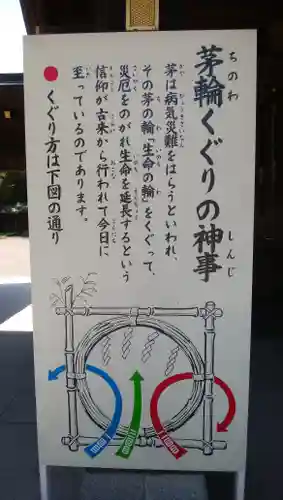 茅輪くぐりの神事
ちのわ
しんじ
茅は病気災難をはらうといわれ、
その茅の輪「生命の輪」をくぐって、
災厄をのがれ生命を延長するという
信仰が古来から行われて今日に
至っているのであります。
●くぐり方は下図の通り